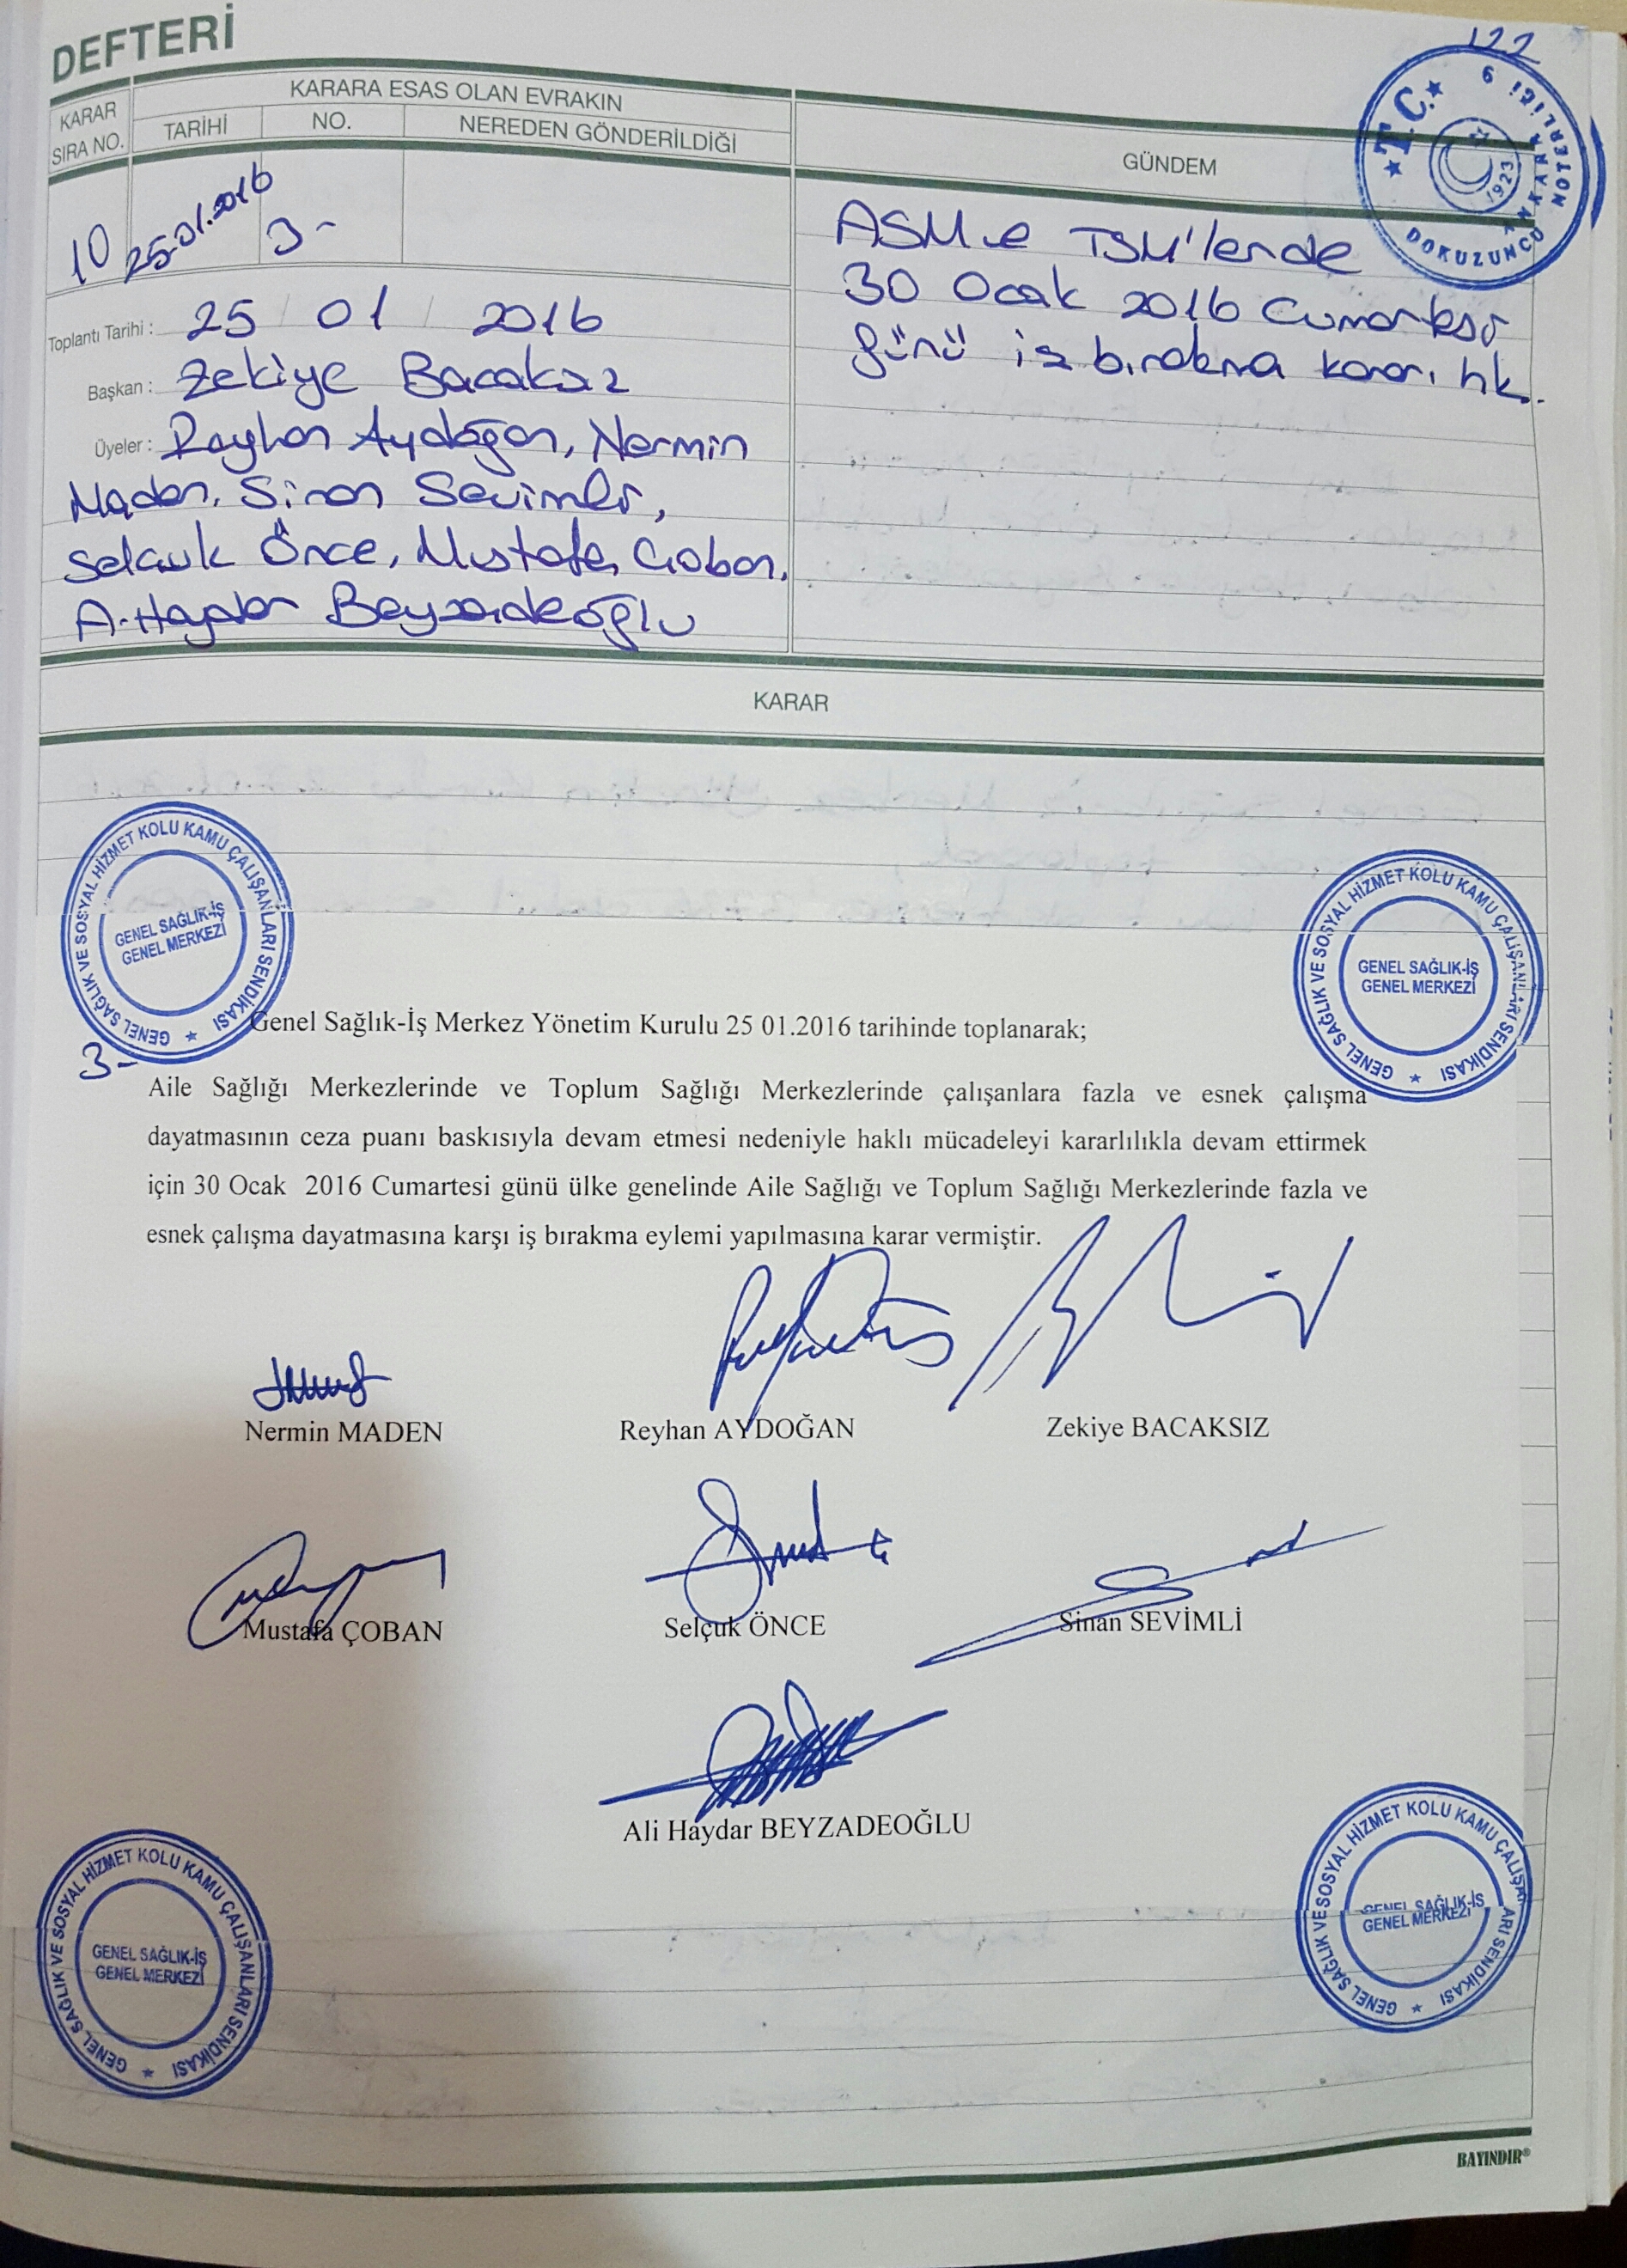 DEFTERİ
122
KARAR SIRA NO.
KARARA ESAS OLAN EVRAKIN
TARİHİ NO. NEREDEN GÖNDERİLDİĞİ
GÜNDEM
T.C. ANKARA DOKUZUNCU NOTERLİĞİ 9
1923
10 25.01.2016 3-
Toplantı Tarihi : 25 / 01 / 2016
Başkan : Zekiye Bacaksız
Üyeler : Reyhan Aydoğan, Nermin
Maden, Sinan Sevimli,
Selçuk Önce, Mustafa Çoban,
A. Haydar Beyzadeoğlu
ASM ve TSM'lerde
30 Ocak 2016 Cumartesi
günü iş bırakma kararı hk.
KARAR
GENEL SAĞLIK VE SOSYAL HİZMET KOLU KAMU ÇALIŞANLARI SENDİKASI
GENEL SAĞLIK-İŞ
GENEL MERKEZİ
GENEL SAĞLIK VE SOSYAL HİZMET KOLU KAMU ÇALIŞANLARI SENDİKASI
GENEL SAĞLIK-İŞ
GENEL MERKEZİ
Genel Sağlık-İş Merkez Yönetim Kurulu 25 01.2016 tarihinde toplanarak;
3-
Aile Sağlığı Merkezlerinde ve Toplum Sağlığı Merkezlerinde çalışanlara fazla ve esnek çalışma
dayatmasının ceza puanı baskısıyla devam etmesi nedeniyle haklı mücadeleyi kararlılıkla devam ettirmek
için 30 Ocak 2016 Cumartesi günü ülke genelinde Aile Sağlığı ve Toplum Sağlığı Merkezlerinde fazla ve
esnek çalışma dayatmasına karşı iş bırakma eylemi yapılmasına karar vermiştir.
Nermin MADEN Reyhan AYDOĞAN Zekiye BACAKSIZ
Mustafa ÇOBAN Selçuk ÖNCE Sinan SEVİMLİ
Ali Haydar BEYZADEOĞLU
GENEL SAĞLIK VE SOSYAL HİZMET KOLU KAMU ÇALIŞANLARI SENDİKASI
GENEL SAĞLIK-İŞ
GENEL MERKEZİ
GENEL SAĞLIK VE SOSYAL HİZMET KOLU KAMU ÇALIŞANLARI SENDİKASI
GENEL SAĞLIK-İŞ
GENEL MERKEZİ
BAYINDIR®